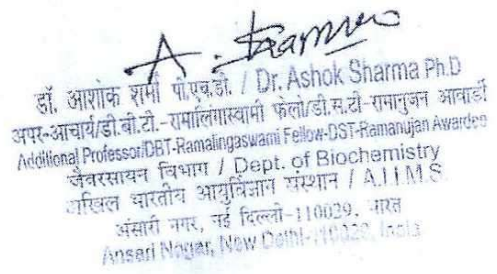 A. Sharma
डॉ. आशोक शर्मा पी.एच.डी. / Dr. Ashok Sharma Ph.D
अपर-आचार्य/डी.बी.टी.-रामालिंगास्वामी फेलो/डी.स.टी-रामानुजन आवार्डी
Additional Professor/DBT-Ramalingaswami Fellow-DST-Ramanujan Awardee
जैवरसायन विभाग / Dept. of Biochemistry
अखिल भारतीय आयुर्विज्ञान संस्थान / A.I.I.M.S.
अंसारी नगर, नई दिल्ली-110029, भारत
Ansari Nagar, New Delhi-110029, India